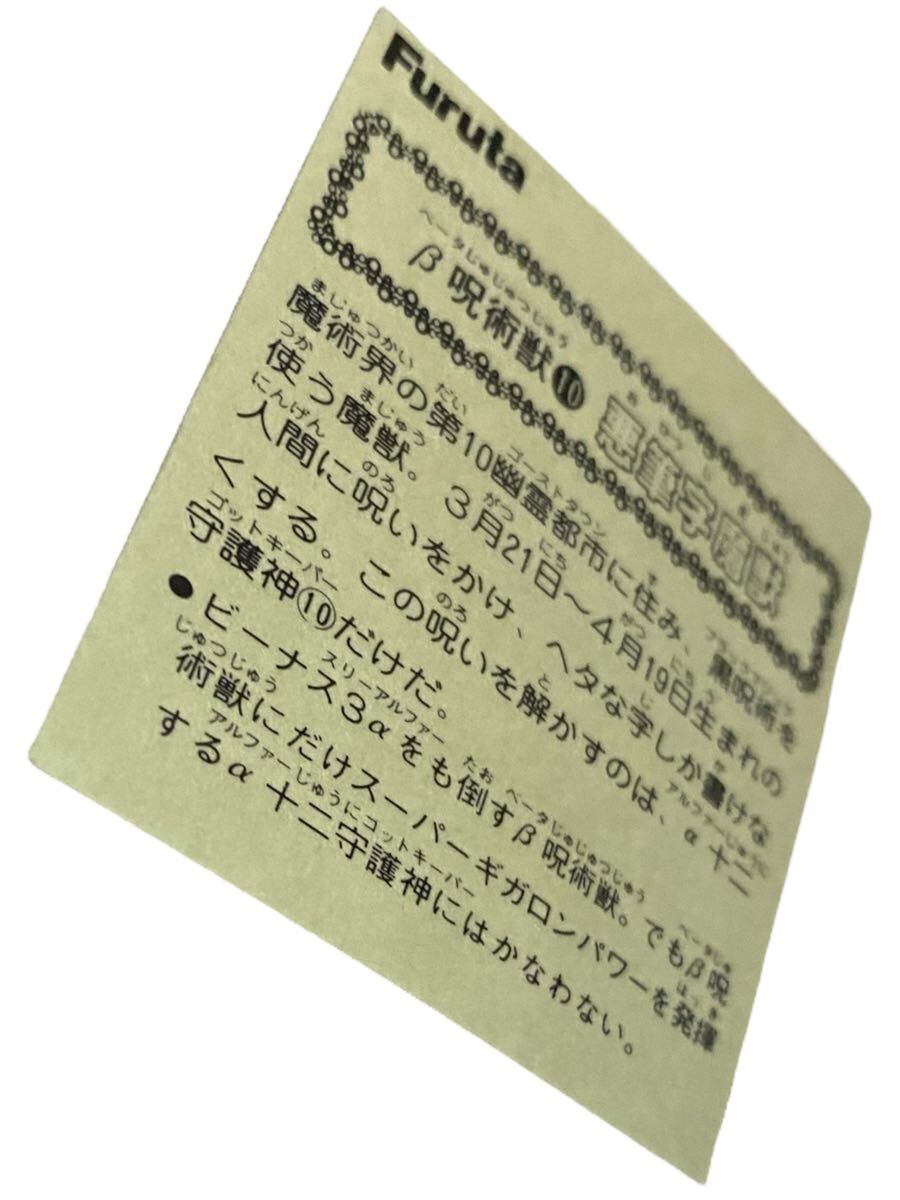 Furuta
β呪術獣⑩ 悪筆字魔獣
魔術界の第10幽霊都市に住み、黒呪術を
使う魔獣。3月21日〜4月19日生まれの
人間に呪いをかけ、ヘタな字しか書けな
くする。この呪いを解かすのは、α十二
守護神⑩だけだ。
●ビーナス3αをも倒すβ呪術獣。でもβ呪
術獣にだけスーパーギガロンパワーを発揮
するα十二守護神にはかなわない。